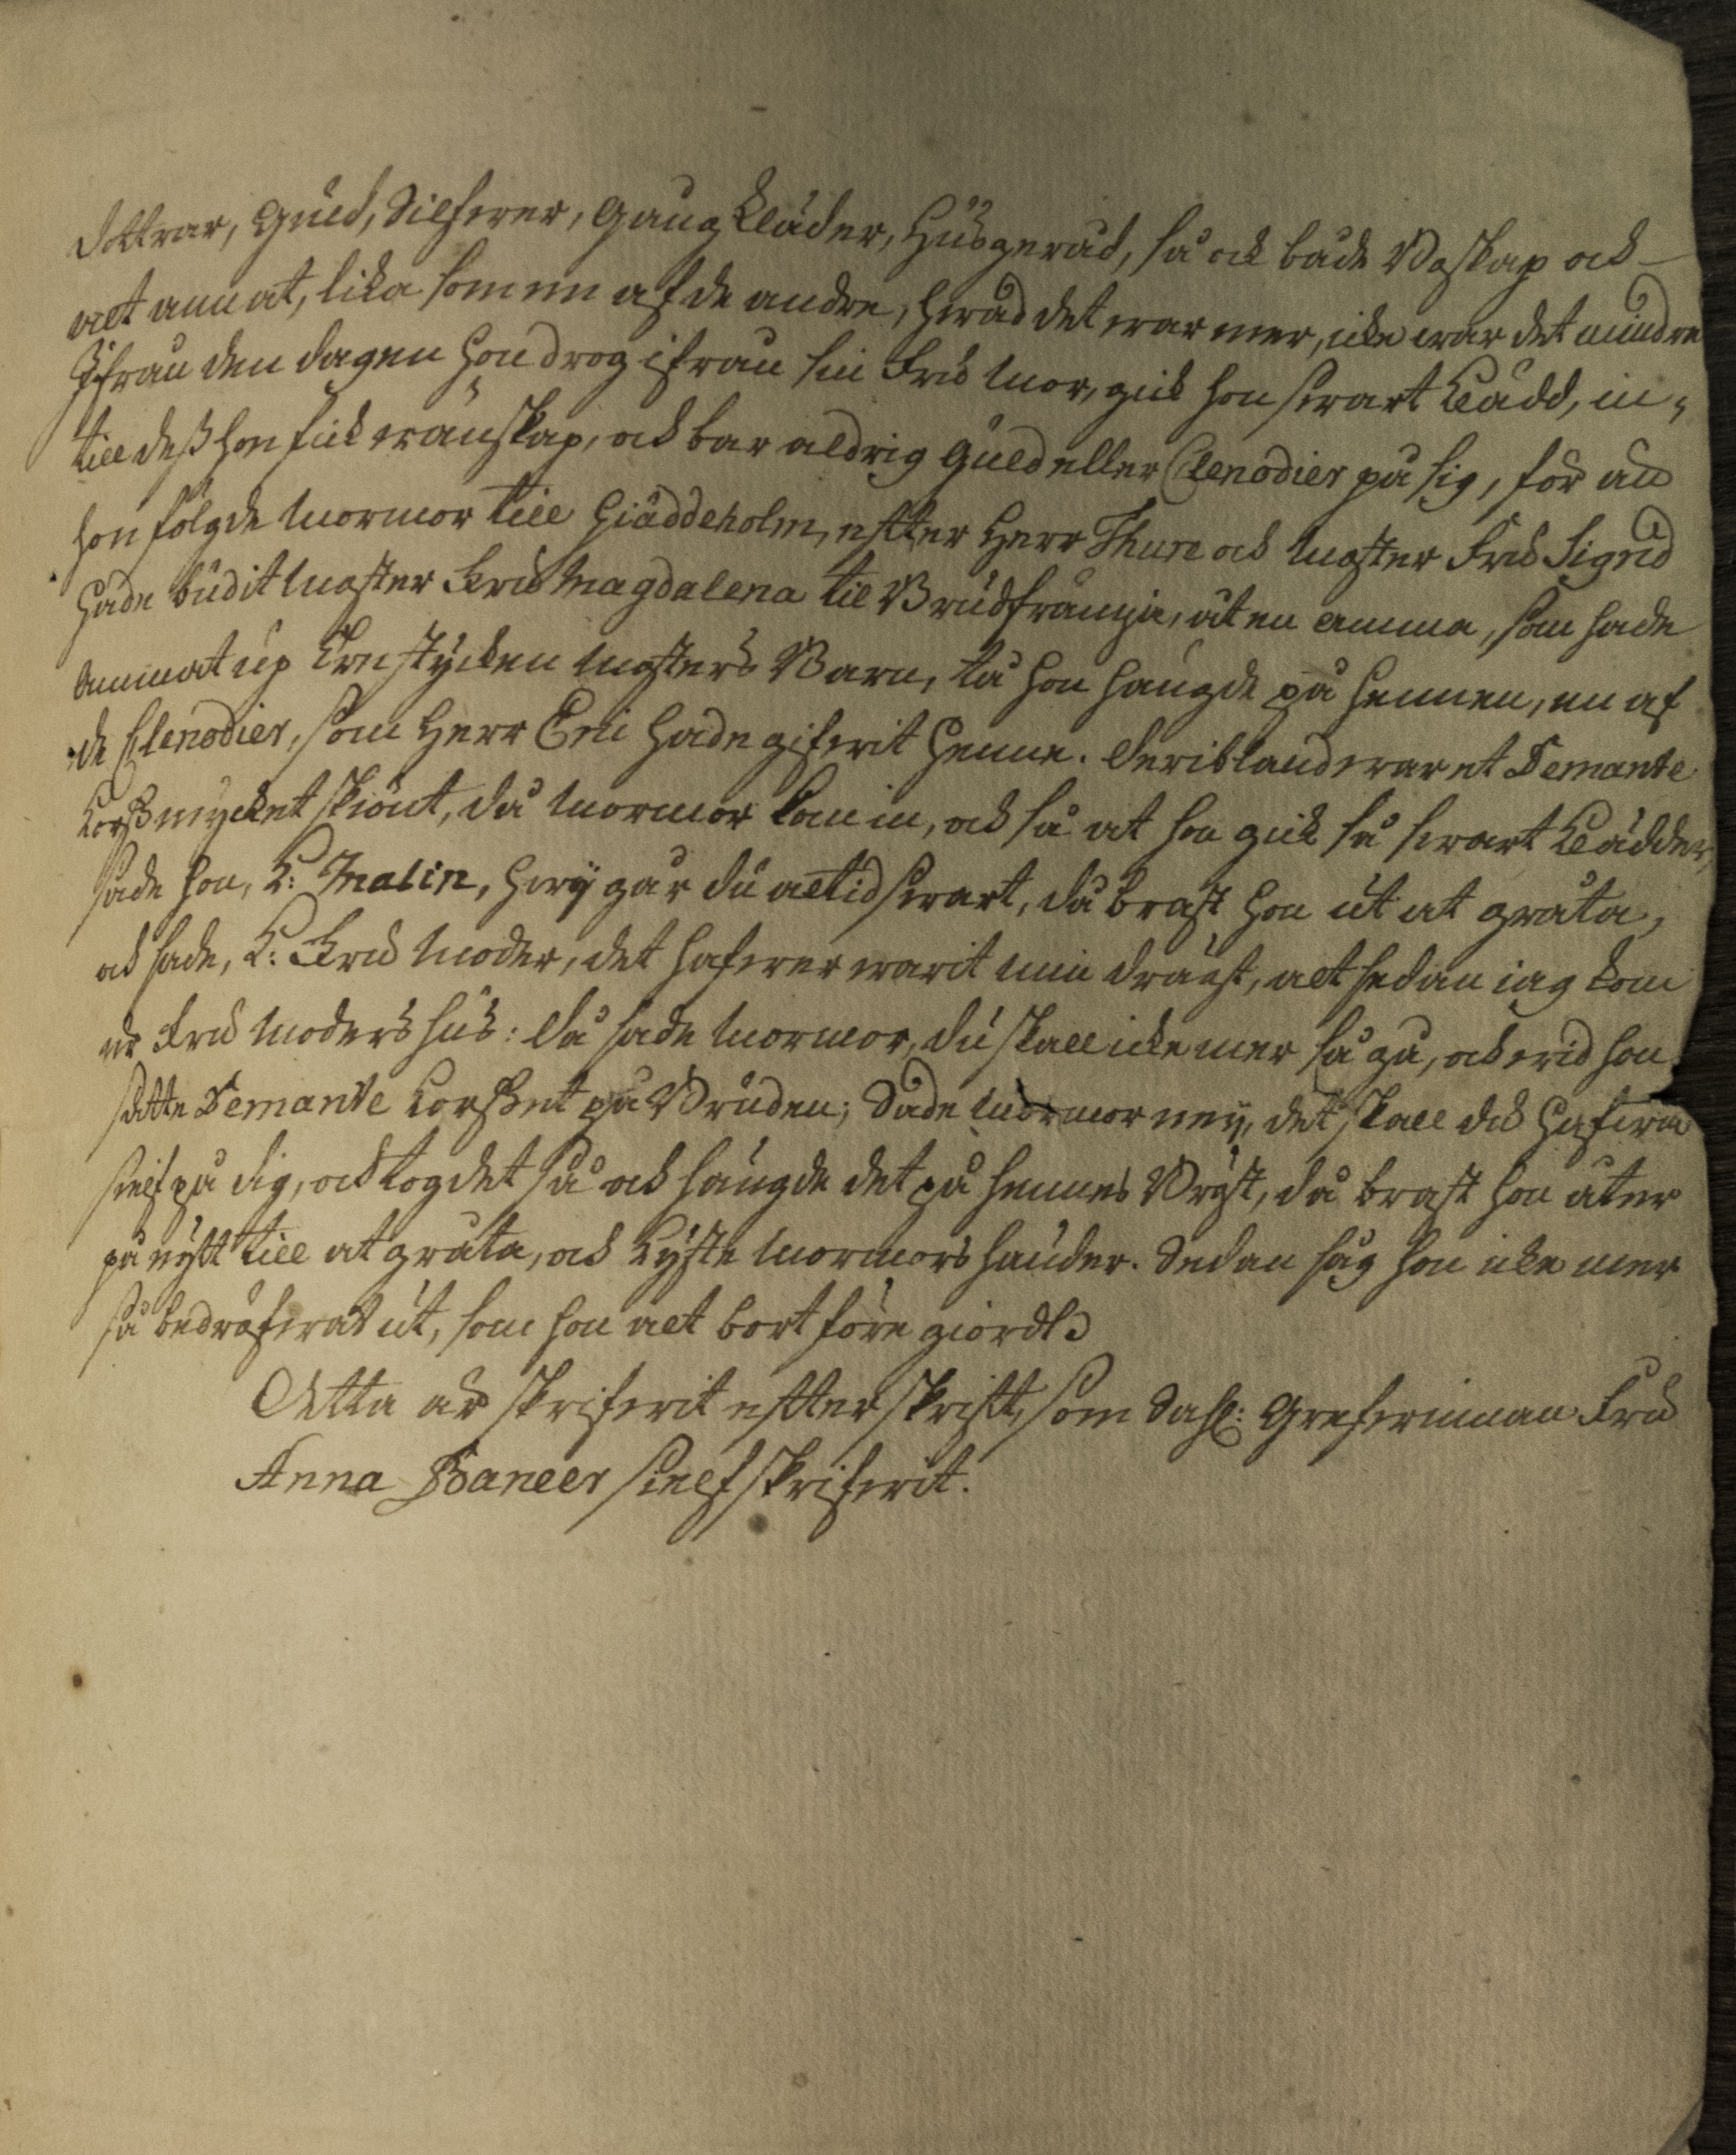 döttrar, Guld, Silfwer, Gång Kläder, Husgeråd, så ock både Boskap och
alt annat, lika som en af de andre, hwad det war mer, icke war det mindre
Ifrån den dagen hon drog ifrån sin Fru Mor, gick hon swart klädd, in,
till dess hon fick wänskap, och bar aldrig Guld eller Clenodier på sig, för än
hon fölgde Mormor till Giäddeholm, effter Herr Thure och Moster Fru Sigrid
hade budit Moster Fru Magdalena til Brudfrämja, åt en amma, som hade
Ammat up Try stycken Mosters Barn, tå hon hängde på hennen, en af
de Clenodier, som Herr Eric hade gifwit henne. deribland war et Demante
Korss mycket skiönt, då Mormor kom in, och så at hon gick så swart klädder,
sade hon, K: Malin, hwÿ går du altid swart, då brast hon ut at gråta,
och sade, K: Fru Moder, det hafwer warit min drägt, alt sedan iag kom
ur Fru Moders hus: Då sade Mormor, du skall icke mer så gå, och wid hon
sätte Demante Korsset på Bruden; Sade Mormor neÿ, det skall du hafwa
sielf på dig, och tog det så och hängde det på hennes Bröst, då brast hon åter
på nÿtt till at gråta, och kÿste Mormors händer. Sedan såg hon icke mer
så bedröfwat ut, som hon alt bort före giorde
Detta är skrifwit effter skrifft, som Sahl: Grefwinnan Fru
Anna Baneer sielf skrifwit.